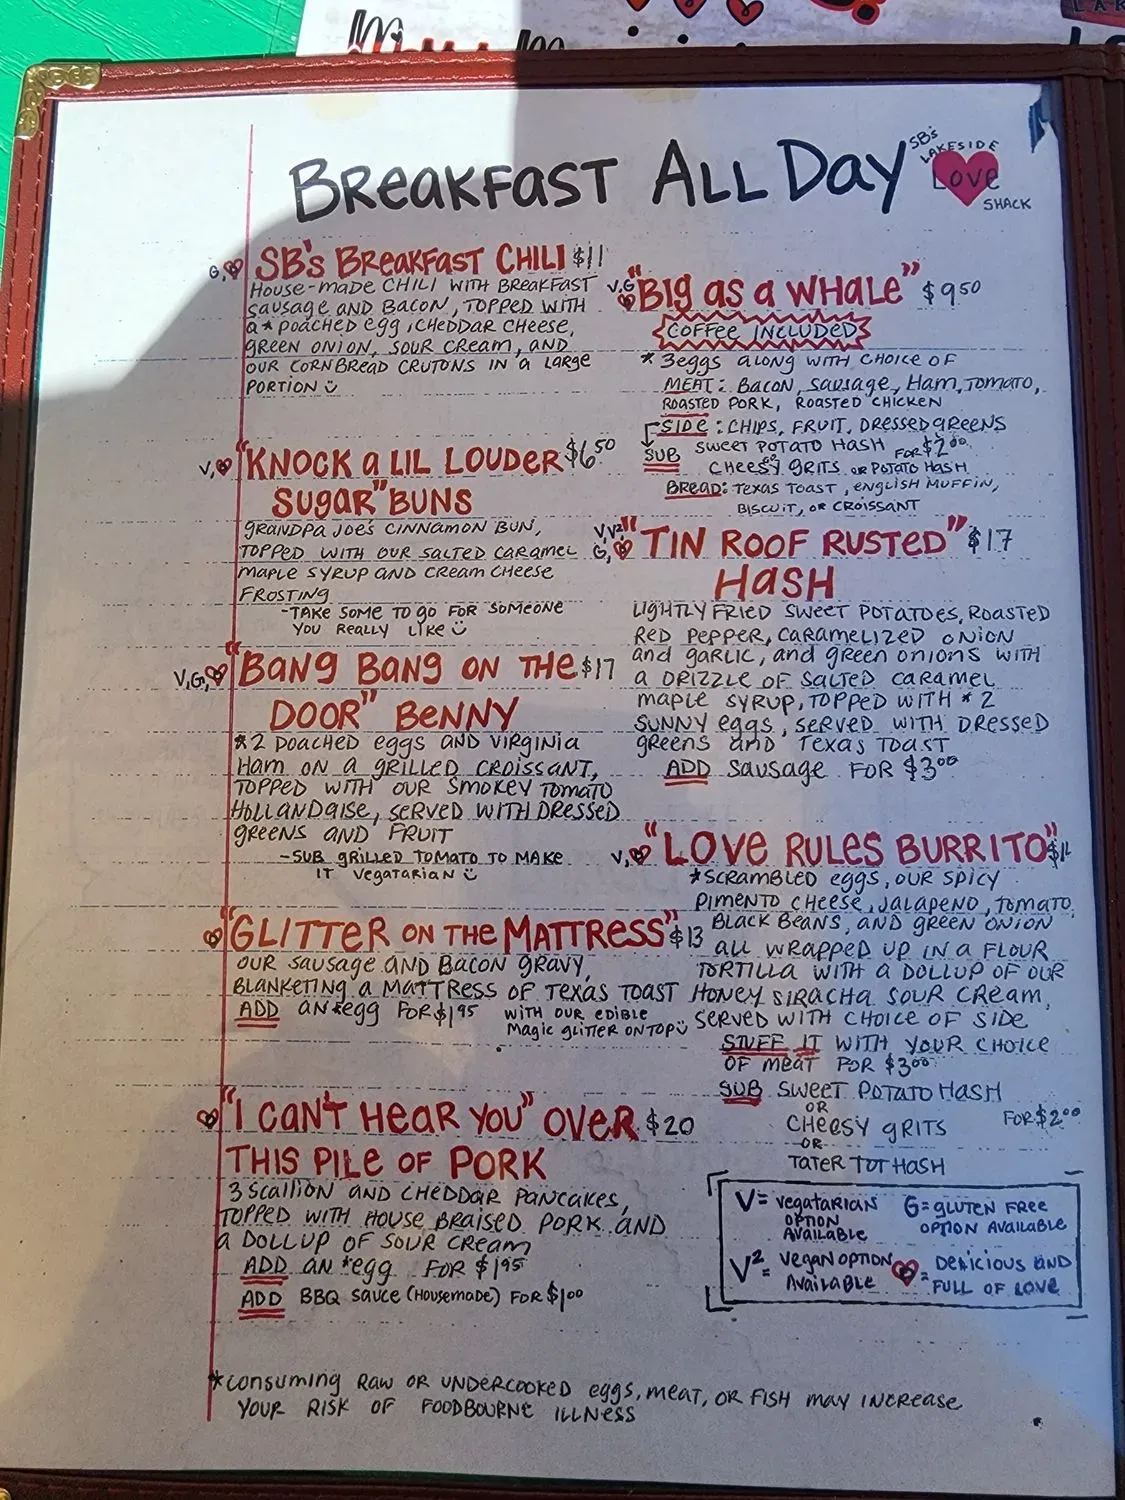 Breakfast All Day
SB's
LAKESIDE
Love
SHACK
G, SB's Breakfast CHILI $11
House-made CHILI with Breakfast
Sausage and Bacon, topped with
a * poached egg, cheddar cheese,
green onion, sour cream, and
our cornbread crutons in a large
portion
V, "Knock a Lil Louder $6.50
Sugar" Buns
Grandpa Joe's cinnamon bun,
topped with our salted caramel
maple syrup and cream cheese
frosting
- Take some to go for someone
you really like
V, G, "Bang Bang on the $17
Door" Benny
*2 poached eggs and Virginia
Ham on a grilled croissant,
topped with our smokey tomato
hollandaise, served with dressed
greens and fruit
- Sub grilled tomato to make
it vegatarian
"Glitter on the Mattress" $13
Our sausage and bacon gravy,
blanketing a mattress of Texas Toast
ADD an *egg for $1.95
with our edible
magic glitter on top
"I can't hear you" over $20
this pile of pork
3 scallion and cheddar pancakes,
topped with house braised pork and
a dollup of sour cream
ADD an *egg for $1.95
ADD BBQ sauce (housemade) for $1.00
V, G "Big as a Whale" $9.50
Coffee Included
* 3 eggs along with choice of
Meat: Bacon, Sausage, Ham, Tomato,
Roasted Pork, Roasted Chicken
Side: Chips, Fruit, Dressed greens
Sub sweet potato hash for $2.00
or
cheesy grits or potato hash
Bread: Texas Toast, English muffin,
biscuit, or croissant
V, V2, G, "Tin Roof Rusted" $17
Hash
Lightly fried sweet potatoes, roasted
red pepper, caramelized onion
and garlic, and green onions with
a drizzle of salted caramel
maple syrup, topped with *2
sunny eggs, served with dressed
greens and Texas Toast
ADD sausage for $3.00
V, "Love Rules Burrito"
*Scrambled eggs, our spicy
pimento cheese, jalapeno, tomato,
black beans, and green onion
all wrapped up in a flour
tortilla with a dollup of our
honey siracha sour cream,
served with choice of side
Stuff it with your choice
of meat for $3.00
Sub sweet potato hash
or
cheesy grits for $2.00
-or-
tater tot hash
V = Vegatarian option available
G = Gluten free option available
V2 = Vegan option available
= Delicious and full of love
*Consuming raw or undercooked eggs, meat, or fish may increase
your risk of foodbourne illness